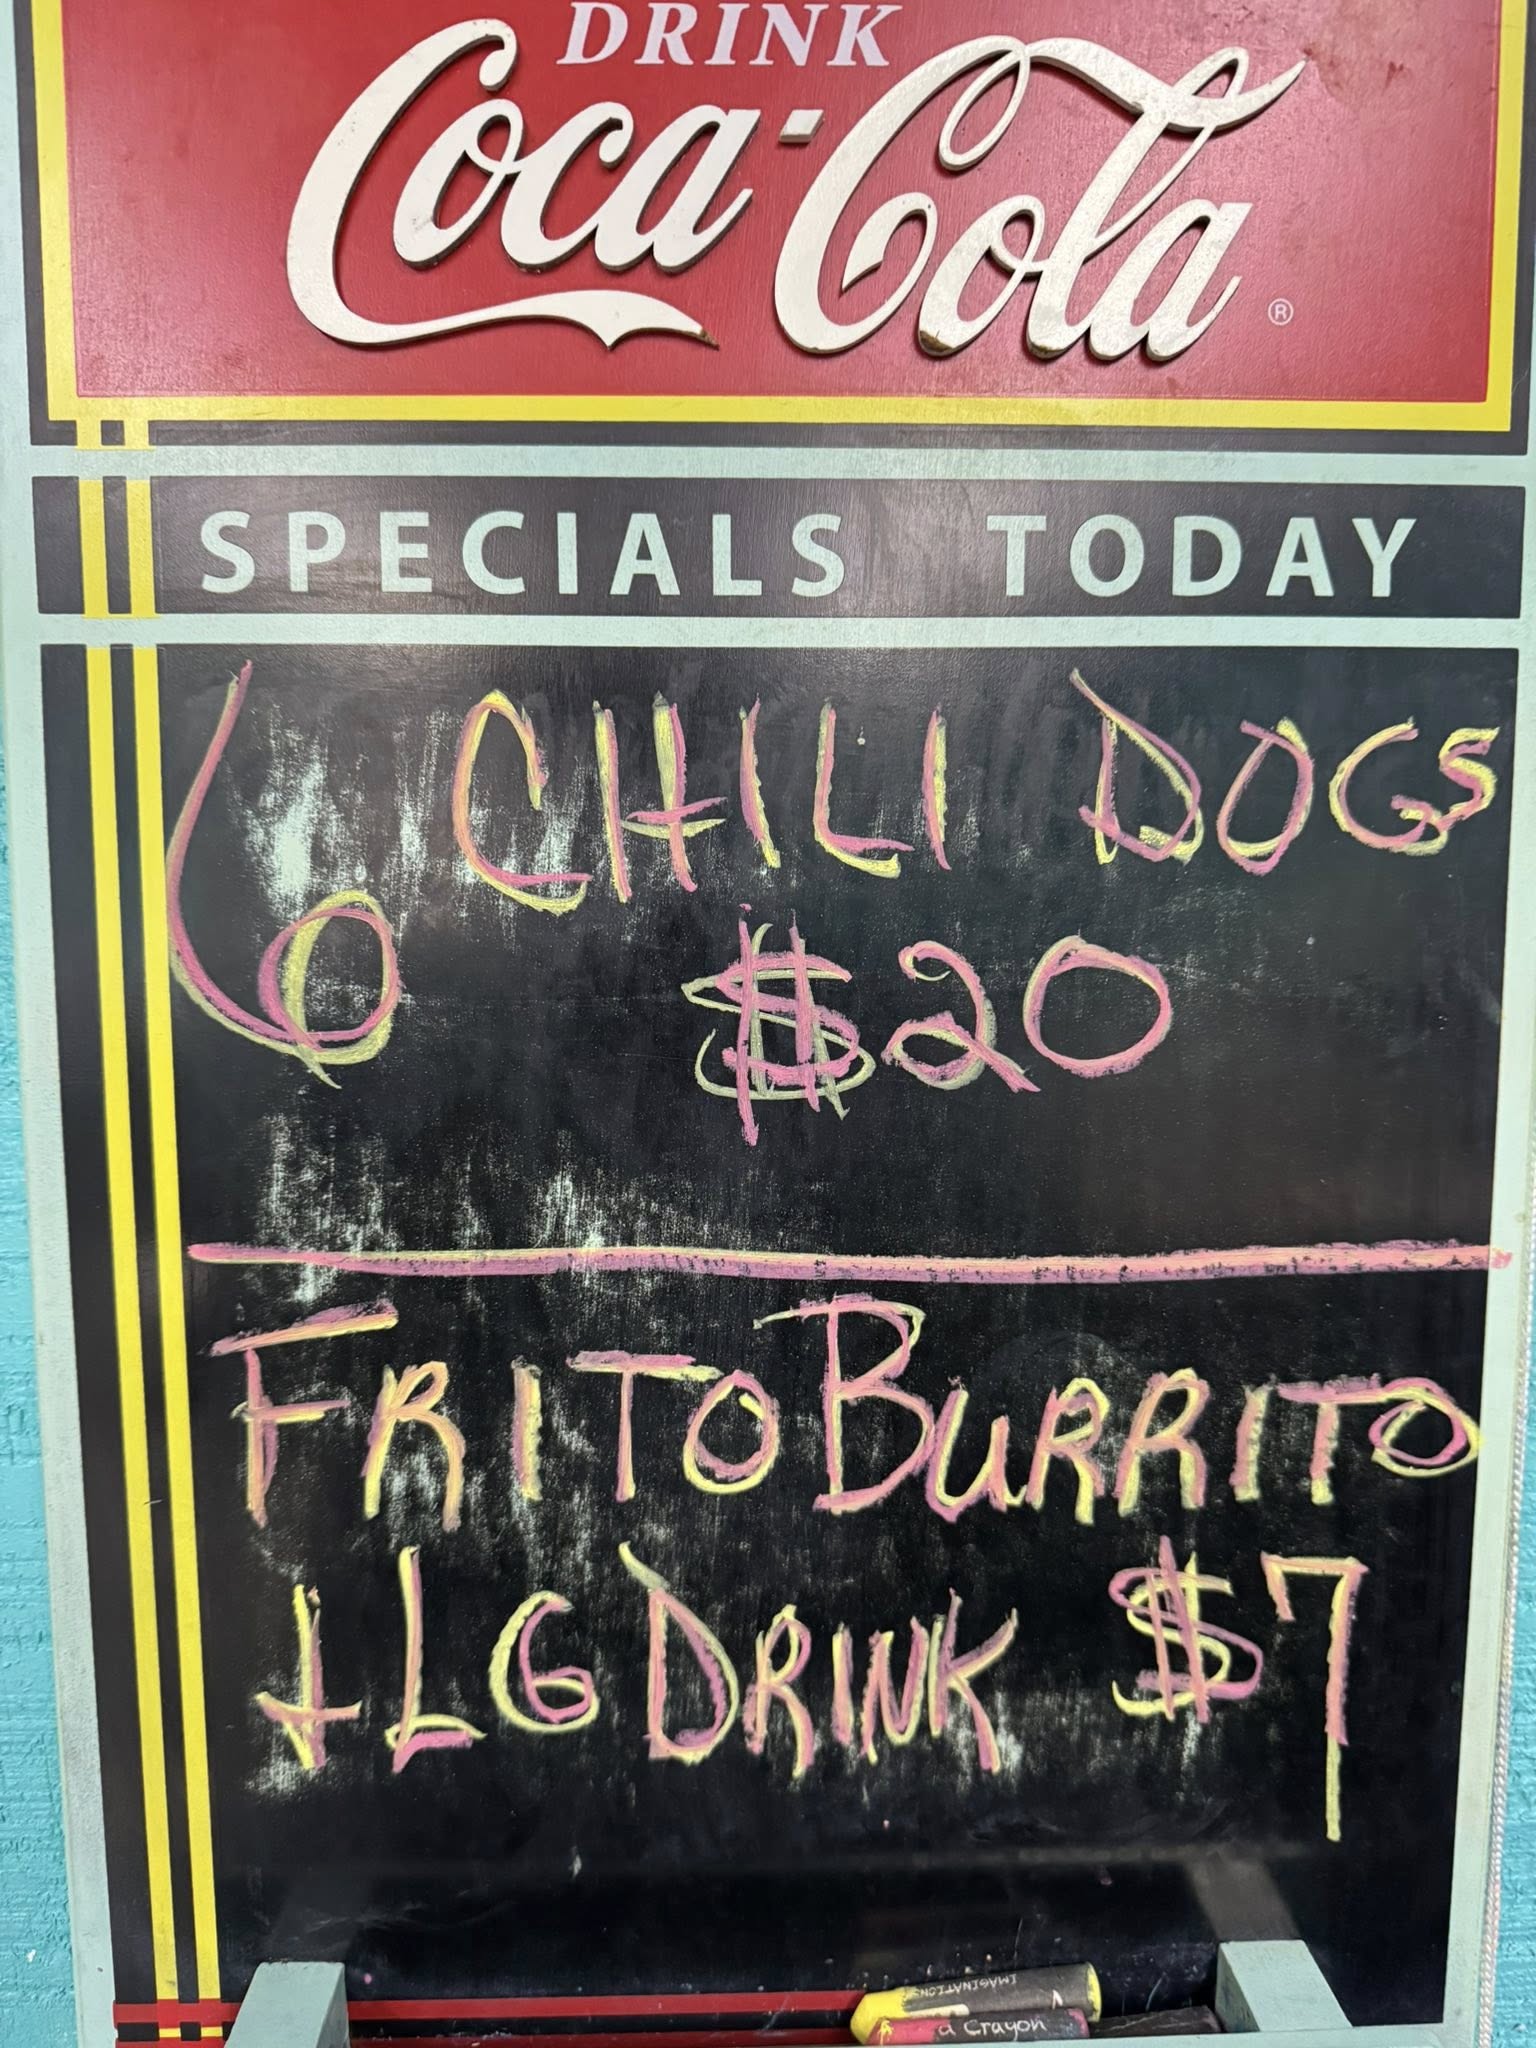 DRINK
Coca-Cola
®
SPECIALS TODAY
6 CHILI DOGS
$20
FRITO BURRITO
+ LG DRINK $7
IMAGINATION
a Crayon